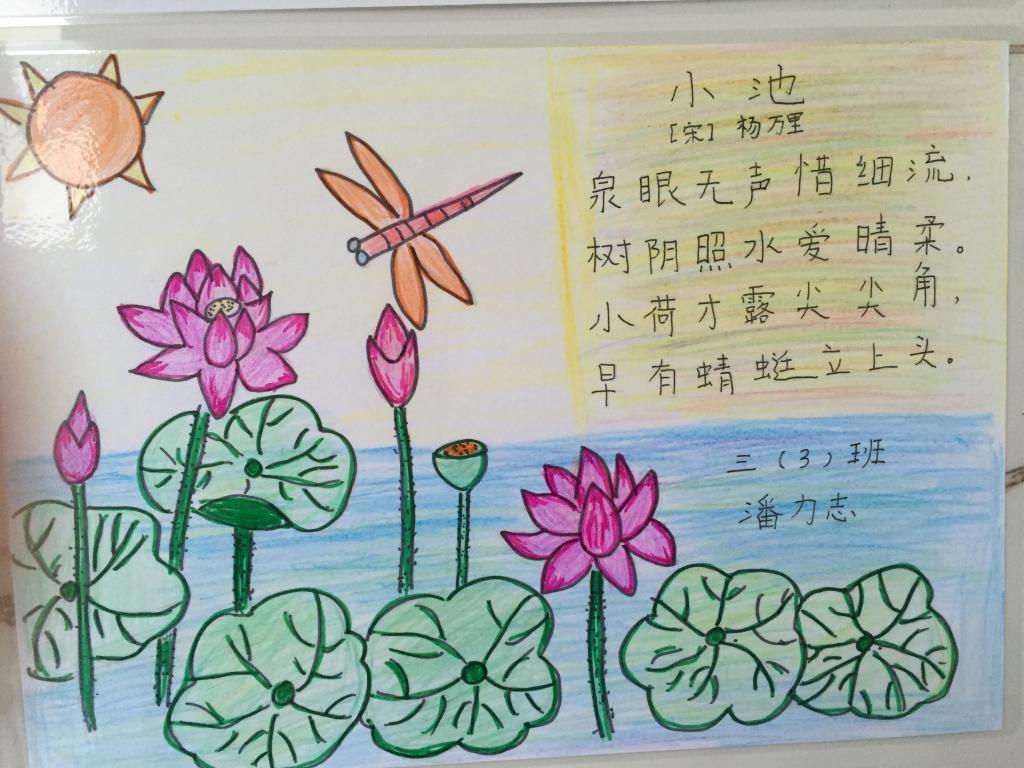 小池
[宋] 杨万里
泉眼无声惜细流,
树阴照水爱晴柔。
小荷才露尖尖角,
早有蜻蜓立上头。
三(3)班
潘力志